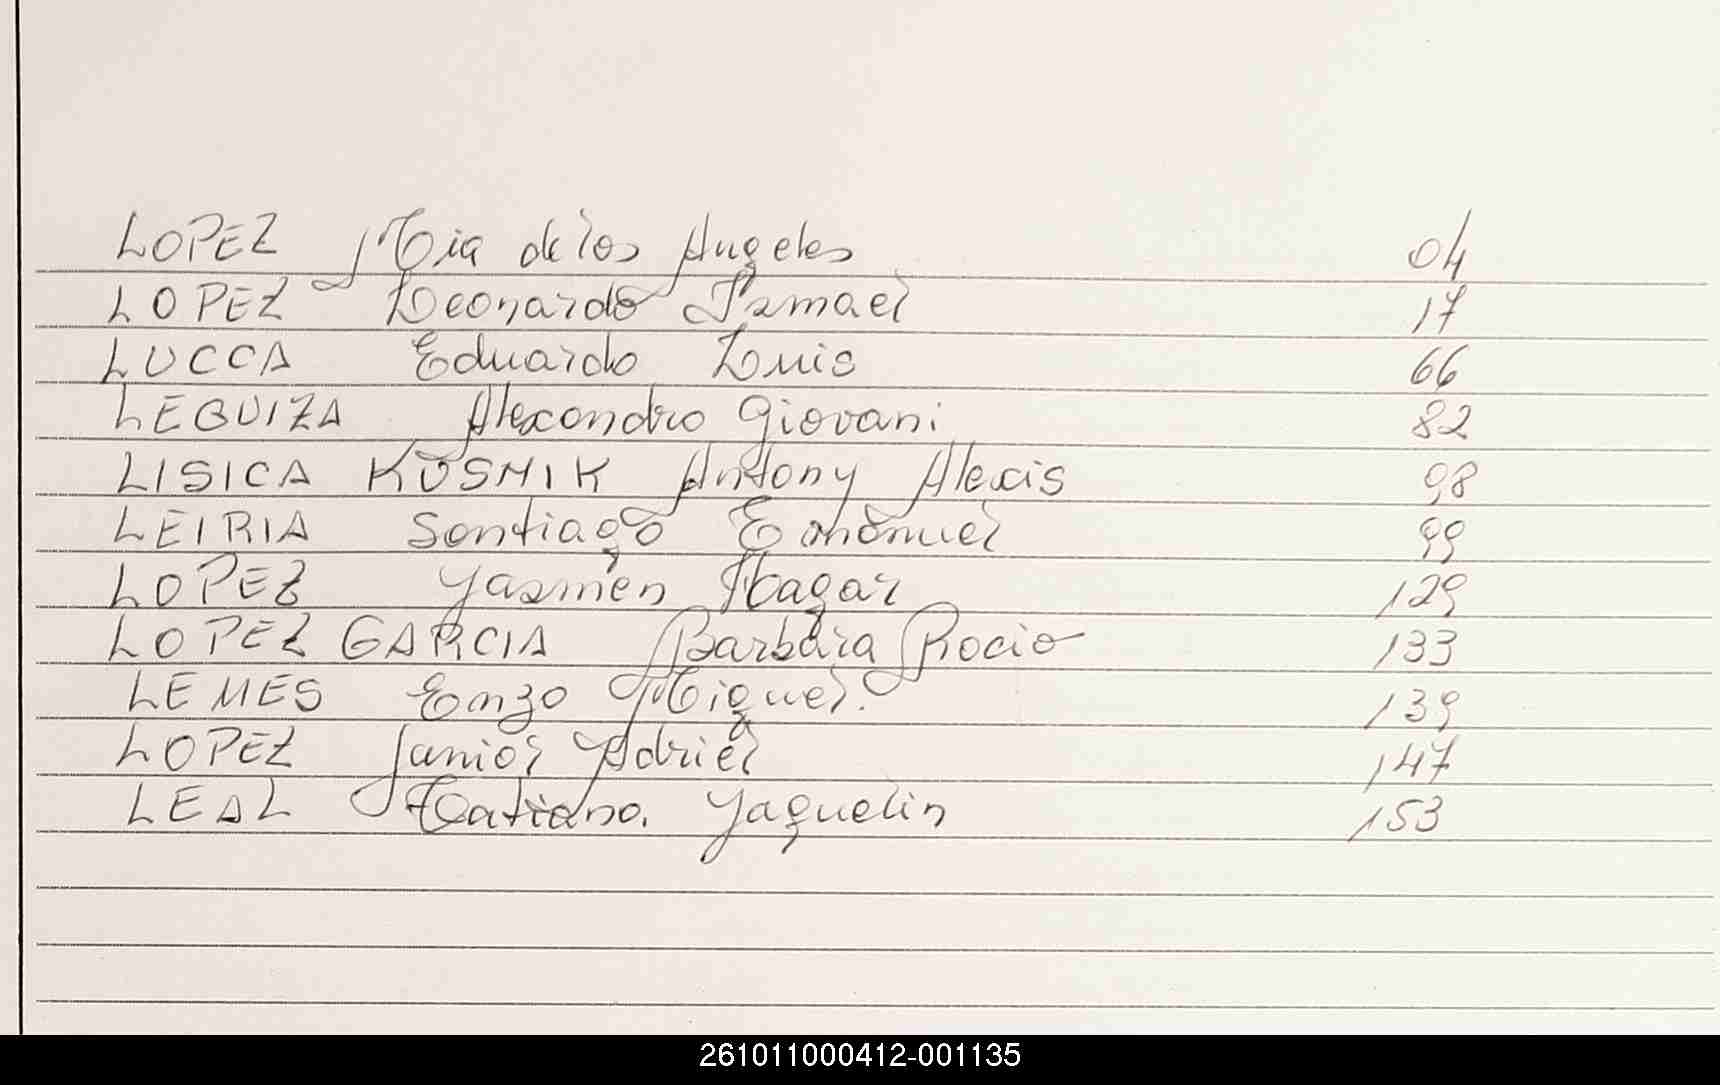 LOPEZ Mia de los Angeles 04
LOPEZ Leonardo Ismael 17
LUCCA Eduardo Luis 66
LEGUIZA Alexandro Giovani 82
LISICA KOSMIK Antony Alexis 98
LEIRIA Santiago Emanuel 99
LOPEZ Yasmen Hagar 129
LOPEZ GARCIA Barbara Rocio 133
LEMES Enzo Miguel. 139
LOPEZ Junior Adriel 147
LEAL Tatiana. Yaquelin 153
261011000412-001135